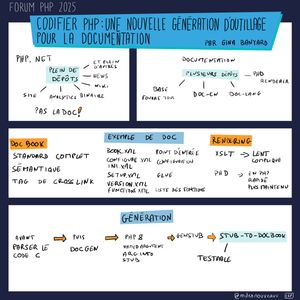 FORUM PHP 2025
CODIFIER PHP : UNE NOUVELLE GÉNÉRATION D'OUTILLAGE
POUR LA DOCUMENTATION
PAR GINA BANYARD
PHP.NET
PLEIN DE
DÉPÔTS
ET PLEIN
D'AUTRES
NEWS
WIKI
SITE
ANALYTICS
BINAIRE
PAS LA DOC!
DOCUMENTATION
PLUSIEURS DÉPÔTS
PHD
RENDERER
BASE
DOC-EN
DOC-LANG
DOCBOOK
STANDARD COMPLET
SÉMANTIQUE
TAG DE CROSSLINK
EXEMPLE DE DOC
BOOK.XML
POINT D'ENTRÉE
CONFIGURE
.XML
CONFIGURATION
INI.XML
SETUP.XML
GLUE
VERSION.XML
FUNCTION.XML
LISTE DES FONCTIONS
RENDERING
XSLT → LENT
COMPLIQUÉ
PHD → EN PHP
RAPIDE
PLUS MAINTENU
GÉNÉRATION
AVANT
PARSER LE
CODE C
PUIS
DOCGEN
PHP 8
NAMED ARGUMENT
ARG INFO
STUB
GENSTUB
STUB-TO-DOCBOOK
TESTABLE